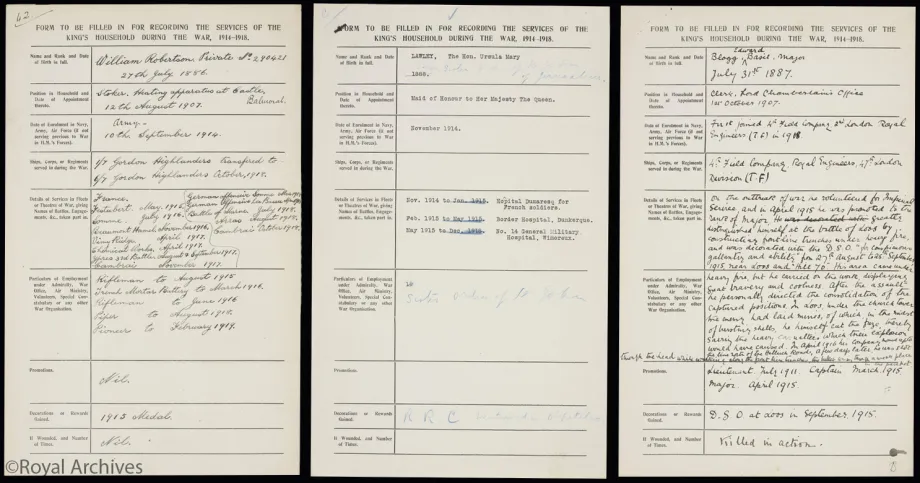 42.
FORM TO BE FILLED IN FOR RECORDING THE SERVICES OF THE
KING'S HOUSEHOLD DURING THE WAR, 1914-1918.
Name and Rank and Date
of Birth in full.
William Robertson, Private No. 290421
27th July 1886.
Position in Household and
Date of Appointment
thereto.
Stoker, Heating apparatus at Castle,
Balmoral.
12th August 1907.
Date of Enrolment in Navy,
Army, Air Force (if not
serving previous to War
in H.M.'s Forces).
Army -
10th September 1914.
Ships, Corps, or Regiments
served in during the War.
1/7 Gordon Highlanders transfered to
6/7 Gordon Highlanders October, 1918.
Details of Services in Fleets
or Theatres of War, giving
Names of Battles, Engage-
ments, &c., taken part in.
France.
Festubert. May. 1915.
Somme. July 1916.
Beaumont Hamel November 1916.
Vimy Ridge. April 1917.
Chemical Works. April 1917.
Ypres 3rd Battle August & September 1917.
Cambrai November 1917.
German offensive
German Offensive
Battle of Marne. July 1918.
Arras August 1918.
Cambrai October 1918.
Particulars of Employment
under Admiralty, War
Office, Air Ministry,
Volunteers, Special Con-
stabulary or any other
War Organisation.
Rifleman to August 1915
Trench Mortar Battery to March 1916.
Rifleman to June 1916
Piper to August 1918.
Pioneer to February 1919.
Promotions.
Nil.
Decorations or Rewards
Gained.
1913 Medal.
If Wounded, and Number
of Times.
Nil.
©Royal Archives
FORM TO BE FILLED IN FOR RECORDING THE SERVICES OF THE
KING'S HOUSEHOLD DURING THE WAR, 1914-1918.
Name and Rank and Date
of Birth in full.
LAWLEY, The Hon. Ursula Mary
1888.
Position in Household and
Date of Appointment
thereto.
Maid of Honour to Her Majesty The Queen.
Date of Enrolment in Navy,
Army, Air Force (if not
serving previous to War
in H.M.'s Forces).
November 1914.
Ships, Corps, or Regiments
served in during the War.
Details of Services in Fleets
or Theatres of War, giving
Names of Battles, Engage-
ments, &c., taken part in.
Nov. 1914 to Jan. 1915. Hospital Dumaresq for
French soldiers.
Feb. 1915 to May 1915. Border Hospital, Dunkerque.
May 1915 to Dec. 1915. No. 14 General Military
Hospital, Wimereux.
Particulars of Employment
under Admiralty, War
Office, Air Ministry,
Volunteers, Special Con-
stabulary or any other
War Organisation.
Promotions.
Decorations or Rewards
Gained.
R R C
If Wounded, and Number
of Times.
FORM TO BE FILLED IN FOR RECORDING THE SERVICES OF THE
KING'S HOUSEHOLD DURING THE WAR, 1914-1918.
Name and Rank and Date
of Birth in full.
Blogg Edward Basil, Major
July 31st 1887.
Position in Household and
Date of Appointment
thereto.
Clerk, Lord Chamberlain's Office
1st October 1907.
Date of Enrolment in Navy,
Army, Air Force (if not
serving previous to War
in H.M.'s Forces).
First joined 4th Field Company 2nd London Royal
Engineers (T.F.) in
Ships, Corps, or Regiments
served in during the War.
4th Field Company Royal Engineers, 47th London
Division (T.F.)
Details of Services in Fleets
or Theatres of War, giving
Names of Battles, Engage-
ments, &c., taken part in.
On the outbreak of war he volunteered for Imperial
Service, and in April 1915 he was promoted to the
rank of Major. He was decorated when greatly
distinguished himself at the battle of Loos by
constructing forward line trenches under heavy fire,
and was decorated with the D.S.O. "for conspicuous
gallantry and ability, on 27th August to 25th September
1915, near Loos and "Hill 70". His area came under
heavy fire, but he carried on the work displaying
great bravery and coolness. After the assault
he personally directed the consolidation of the
captured positions. In Loos, under the church tower
the enemy had laid mines, of which in the midst
of bursting shells, he himself cut the fuze, thereby
saving the heavy casualties which their explosion
would have caused. In April 1916 his company
a few days later he was shot
through the head while
Particulars of Employment
under Admiralty, War
Office, Air Ministry,
Volunteers, Special Con-
stabulary or any other
War Organisation.
Promotions.
Lieutenant July 1911. Captain March 1915
Major. April 1915.
Decorations or Rewards
Gained.
D.S.O at Loos in September, 1915.
If Wounded, and Number
of Times.
Killed in action.